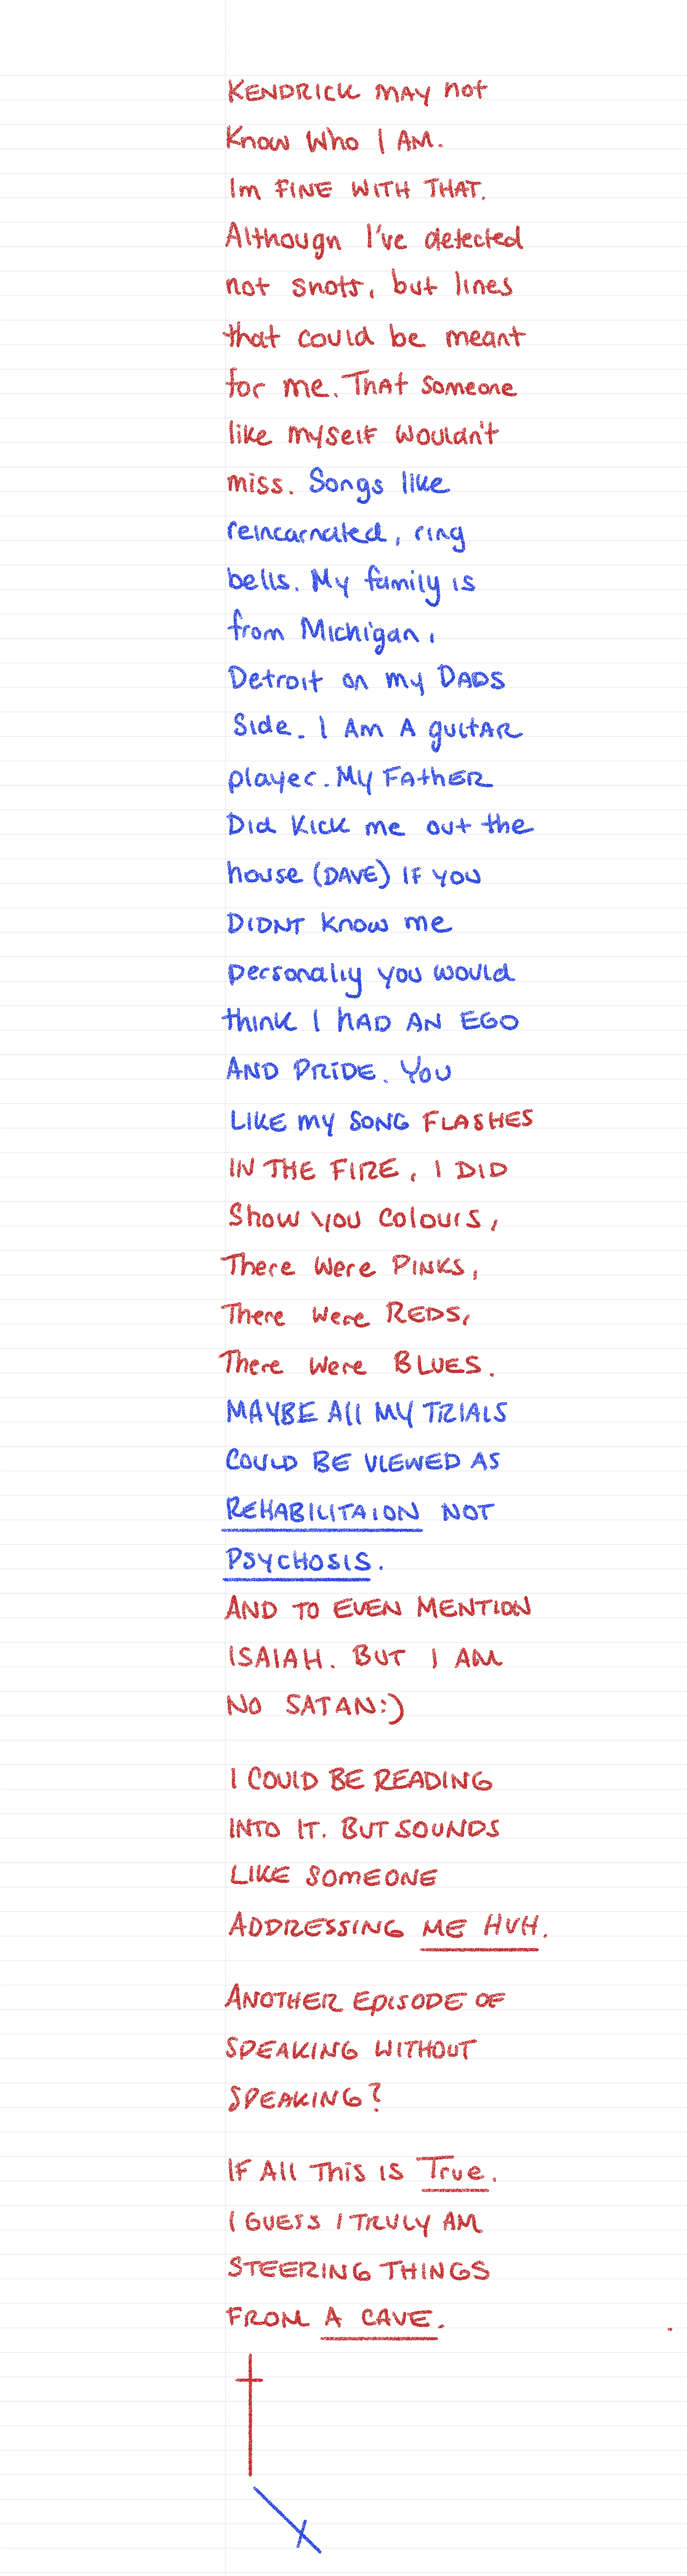 KENDRICK MAY not
Know Who I AM.
Im FINE WITH THAT.
Although I've detected
not shots, but lines
that could be meant
for me. THAt someone
like myself wouldn't
miss. Songs like
reincarnated, ring
bells. My family is
from Michigan,
Detroit on my DADS
Side. I AM A guitAR
player. My FAtHER
Did Kick me out the
house (DAVE) IF YOU
DIDNT Know me
personally you would
think I HAD AN EGO
AND PRIDE. YOU
LIKE MY SONG FLASHES
IN THE FIRE, I DID
Show you Colours,
There Were PINKS,
There Were REDS,
There Were BLUES.
MAYBE All MY TRIALS
COULD BE VIEWED AS
REHABILITAION NOT
PSYCHOSIS.
AND TO EVEN MENTION
ISAIAH. BUT I AM
NO SATAN:)
I COULD BE READING
INTO IT. BUT SOUNDS
LIKE SOMEONE
ADDRESSING ME HUH.
ANOTHER EPISODE OF
SPEAKING WITHOUT
SPEAKING?
IF All This IS True.
I GUESS I TRULY AM
STEERING THINGS
FROM A CAVE.